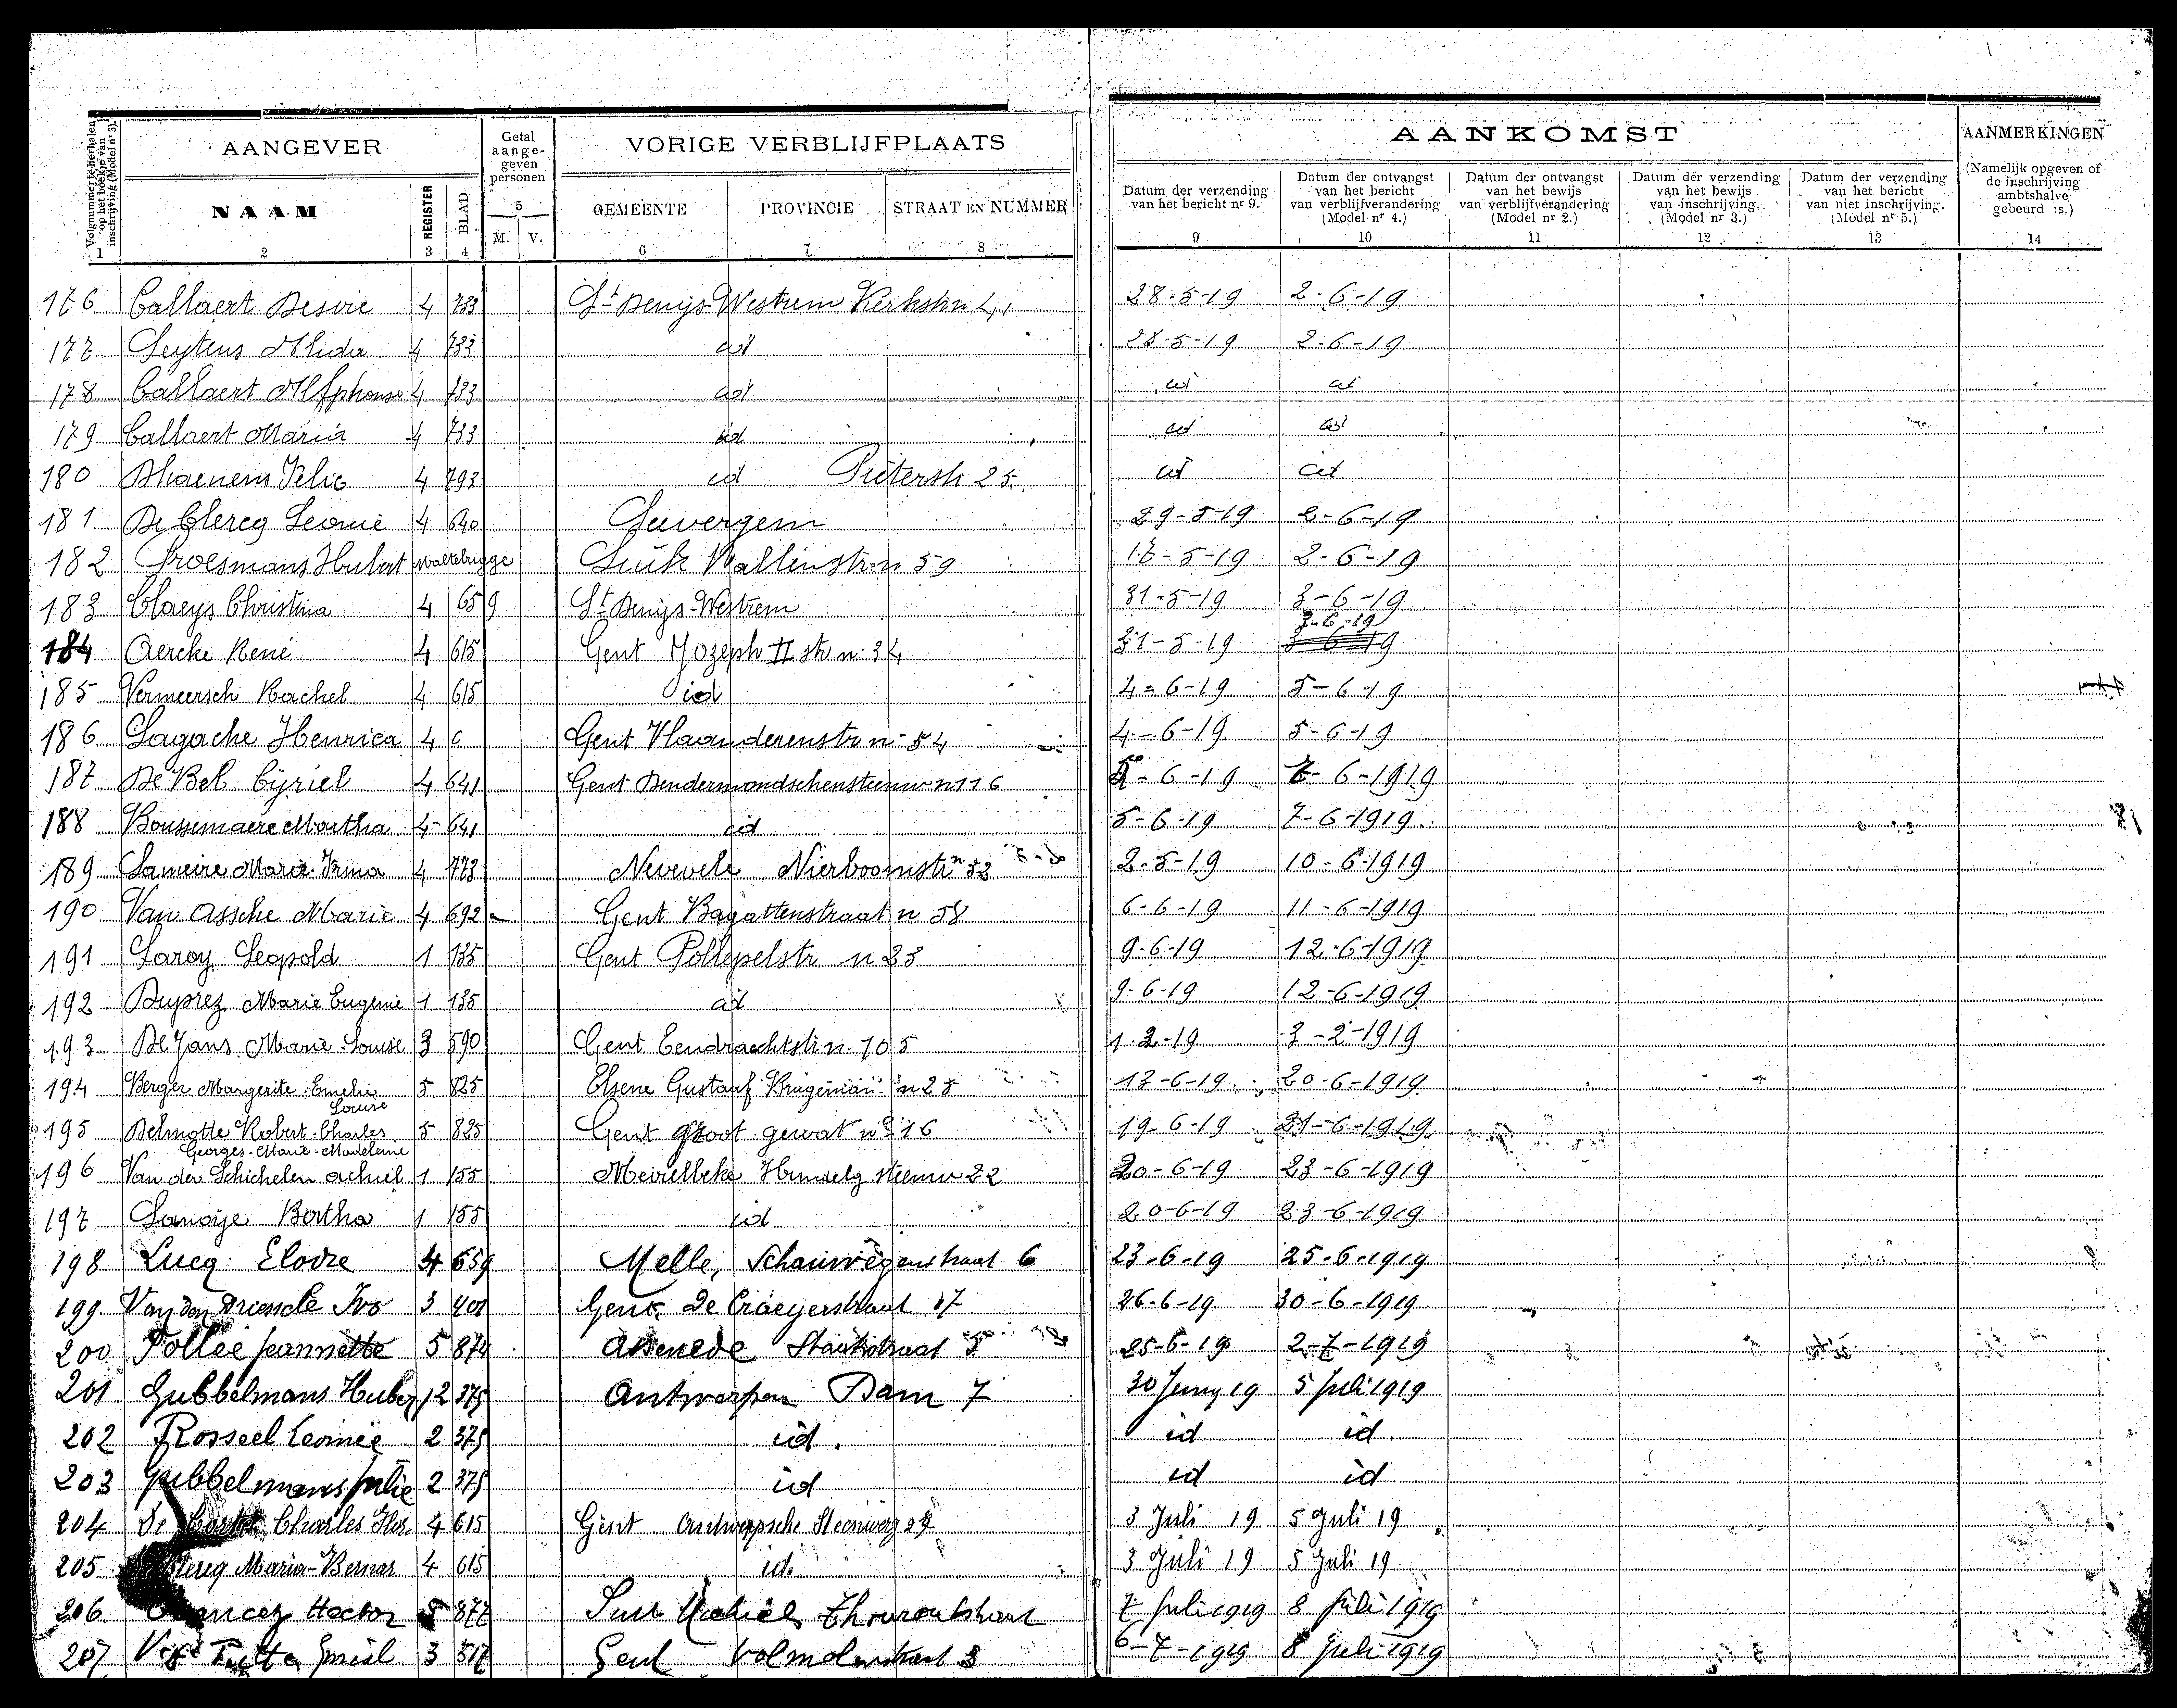 AANGEVER
Getal aange- geven personen
VORIGE VERBLIJFPLAATS
AANKOMST
AANMERKINGEN
(Namelijk opgeven of de inschrijving ambtshalve gebeurd is.)
Volgnummer te herhalen op het boekje van inschrijving (Model nr 3).
NAAM
REGISTER
BLAD
5
M. V.
GEMEENTE
PROVINCIE
STRAAT EN NUMMER
Datum der verzending van het bericht nr 9.
Datum der ontvangst van het bericht van verblijfverandering (Model nr 4.)
Datum der ontvangst van het bewijs van verblijfverandering (Model nr 2.)
Datum der verzending van het bewijs van inschrijving. (Model nr 3.)
Datum der verzending van het bericht van niet inschrijving. (Model nr 5.)
1 2 3 4 6 7 8 9 10 11 12 13 14
176 Callaert Desiré 4 733 St Denijs-Westrem Kerkstr n 41 28-5-19 2-6-19
177 Seytens Alida 4 733 id 28-5-19 2-6-19
178 Callaert Alfphonse 4 733 id id id
179 Callaert Maria 4 733 id id id
180 Dhaenens Felic 4 793 id Pieterstr 25. id id
181 De Clercq Leonie 4 640 29-5-19 2-6-19
182 Hubert Luik 59 17-5-19 2-6-19
183 Claeys Christina 4 659 St Denijs-Westrem 31-5-19 3-6-19
3-6-19
184 Aercke René 4 615 Gent Jozeph II str n. 34 31-5-19 3-6-19
185 Vermeersch Rachel 4 615 id 4-6-19 5-6-19
186 Lagache Henrica 4 c Gent Vlaanderenstr n 54 4-6-19 5-6-19
187 De Bel Cyriel 4 641 Gent Dendermondschensteenw n 116 5-6-19 7-6-1919
188 Boussemaere Martha 4 641 id 5-6-19 7-6-1919
189 Lameire Marie Irma 4 773 Nevele 2-5-19 10-6-1919
190 Van Assche Marie 4 692 Gent Bagattenstraat n 58 6-6-19 11-6-1919
191 Laroy Leopold 1 135 Gent Pollepelstr n 23 9-6-19 12-6-1919
192 Duprez Marie Eugenie 1 135 id 9-6-19 12-6-1919
193 De Jans Marie Louise 3 590 Gent Eendrachtstr n. 105 1-2-19 3-2-1919
194 Berger Margerite Emelie 5 825 Elsene Gustaaf 13-6-19 20-6-1919
Louise
195 Delmotte Robert Charles 5 825 Gent Groot gewat n° 16 19-6-19 21-6-1919
Georges-Marie-Madeleine
196 Van der Schichelen Achiel 1 155 Meirelbeke steenw 22 20-6-19 23-6-1919
197 Lanoije Bertha 1 155 id 20-6-19 23-6-1919
198 Lucq Elodie 4 659 Melle, Schauwegenstraat 6 23-6-19 25-6-1919
199 Van den Driessche Ivo 3 401 Gent De Craeyerstraat 17 26-6-19 30-6-1919
200 Pollée Jeannette 5 874 Assenede Staakstraat 5 25-6-19 2-7-1919
201 Gubbelmans Huber 2 375 Antwerpen Dam 7 30 Juny 19 5 Juli 1919
202 Rosseel Leonie 2 375 id. id id.
203 Gubbelmans Julie 2 375 id id id
204 De Charles 4 615 Gent Antwerpsche Steenweg 27 3 Juli 19 5 Juli 19
205 Clercq Maria-Bernar 4 615 id. 3 Juli 19 5 Juli 19
206 Hector 5 877 Sint Michiels Thouroutstraat 7 Juli 1919 8 Juli 1919
207 3 517 Gent Volmolenstraat 3 6-7-1919 8 Juli 1919